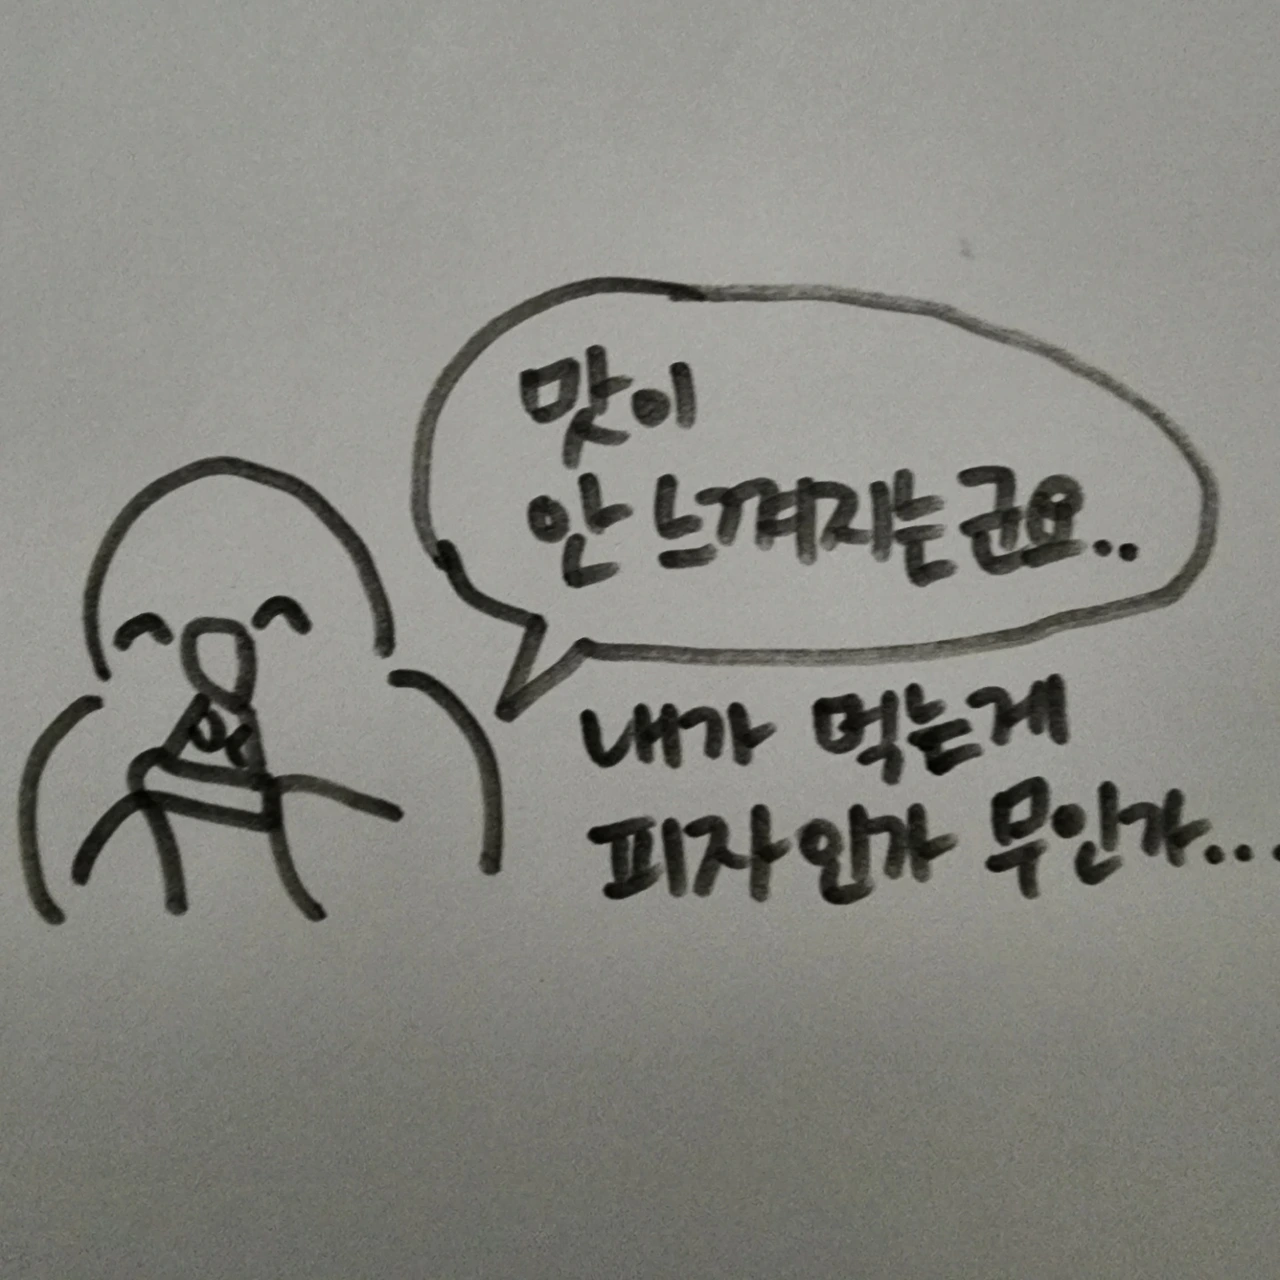 맛이
안 느껴지는군요..
내가 먹는게
피자인가 무인가...